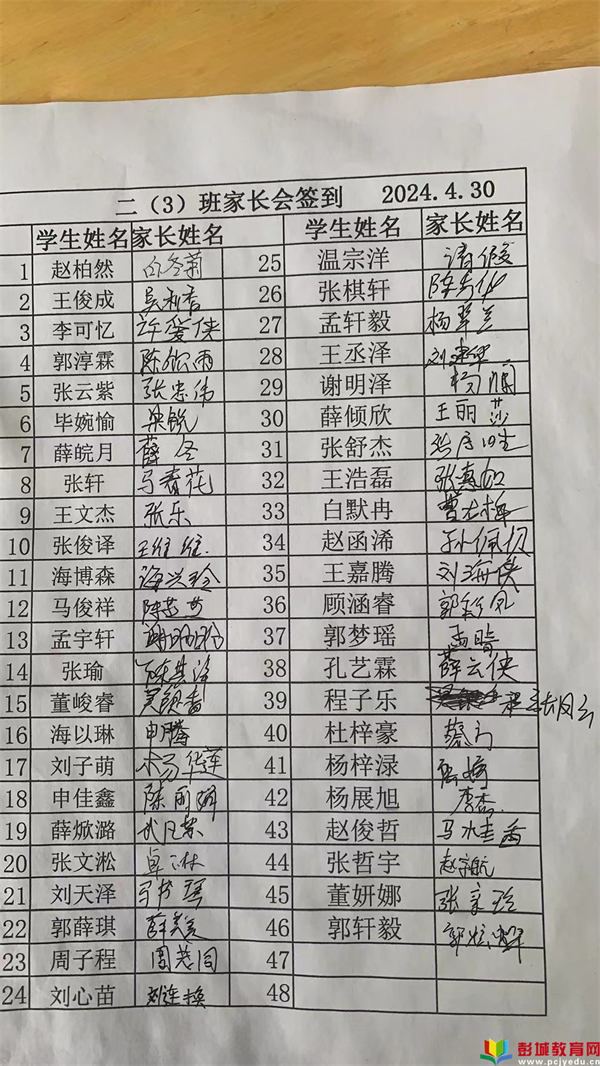 二（3）班家长会签到 2024.4.30
学生姓名 家长姓名 学生姓名 家长姓名
1 赵柏然 25 温宗洋 请假
2 王俊成 吴利香 26 张棋轩
3 李可忆 许爱侠 27 孟轩毅 杨翠兰
4 郭淳霖 28 王丞泽 刘建华
5 张云紫 张忠伟 29 谢明泽 杨闯
6 毕婉愉 梁锐 30 薛倾欣 王丽莎
7 薛皖月 薛冬 31 张舒杰
8 张轩 马春花 32 王浩磊 张真如
9 王文杰 张乐 33 白默冉
10 张俊译 34 赵函浠 孙佩极
11 海博森 海兴玲 35 王嘉腾 刘海侠
12 马俊祥 36 顾涵睿 郭彩凤
13 孟宇轩 37 郭梦瑶 孟晴
14 张瑜 38 孔艺霖 薛云侠
15 董峻睿 39 程子乐
16 海以琳 申腾 40 杜梓豪
17 刘子萌 杨华莲 41 杨梓渌
18 申佳鑫 陈丽娟 42 杨展旭 李杰
19 薛焮潞 43 赵俊哲
20 张文淞 44 张哲宇 赵宇航
21 刘天泽 马书琴 45 董妍娜 张亲玲
22 郭薛琪 薛美美 46 郭轩毅
23 周子程 周慧同 47
24 刘心苗 刘连换 48
彭城教育网
www.pcjyedu.cn